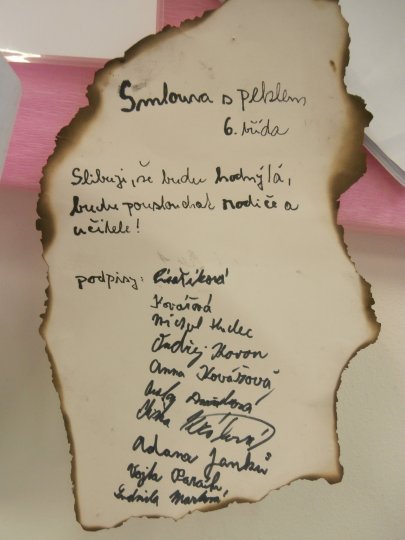 Smlouva s peklem
6. třída
Slibuji, že budu hodný/á,
budu poslouchat rodiče a
učitele!
podpisy:
Kovářová
Michal Hudec
Ondřej Horon
Anna Kovářová
Adana Janků
Vojta
Ludmila